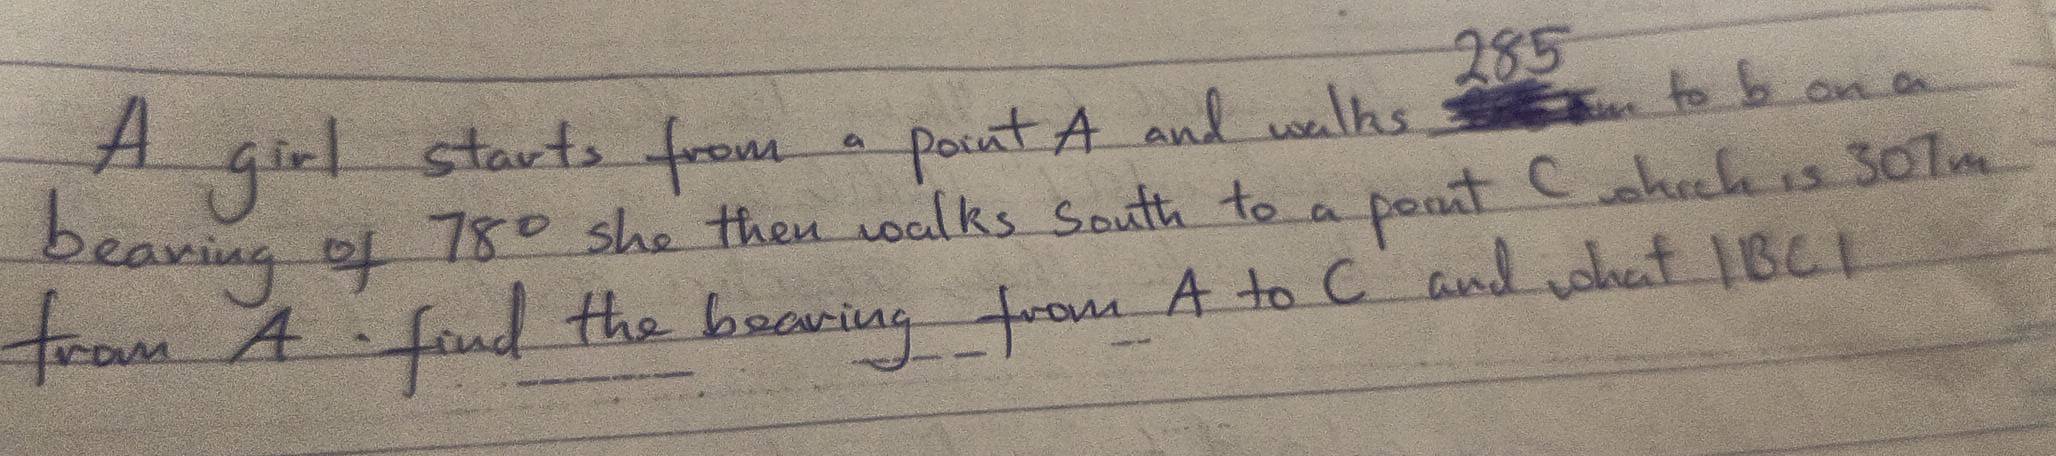 A girl starts from a point A and walks 285 m to b on a
bearing of 78° she then walks South to a point C which is 307m
from A. find the bearing from A to C and what |BC|